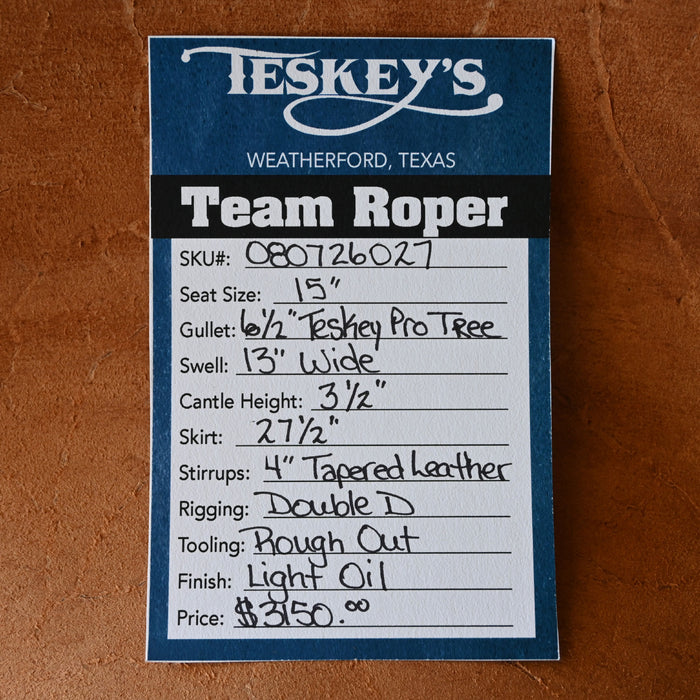 TESKEY'S
WEATHERFORD, TEXAS
Team Roper
SKU#: 080726027
Seat Size: 15"
Gullet: 6½" Teskey Pro Tree
Swell: 13" Wide
Cantle Height: 3½"
Skirt: 27½"
Stirrups: 4" Tapered Leather
Rigging: Double D
Tooling: Rough Out
Finish: Light Oil
Price: $3150.00